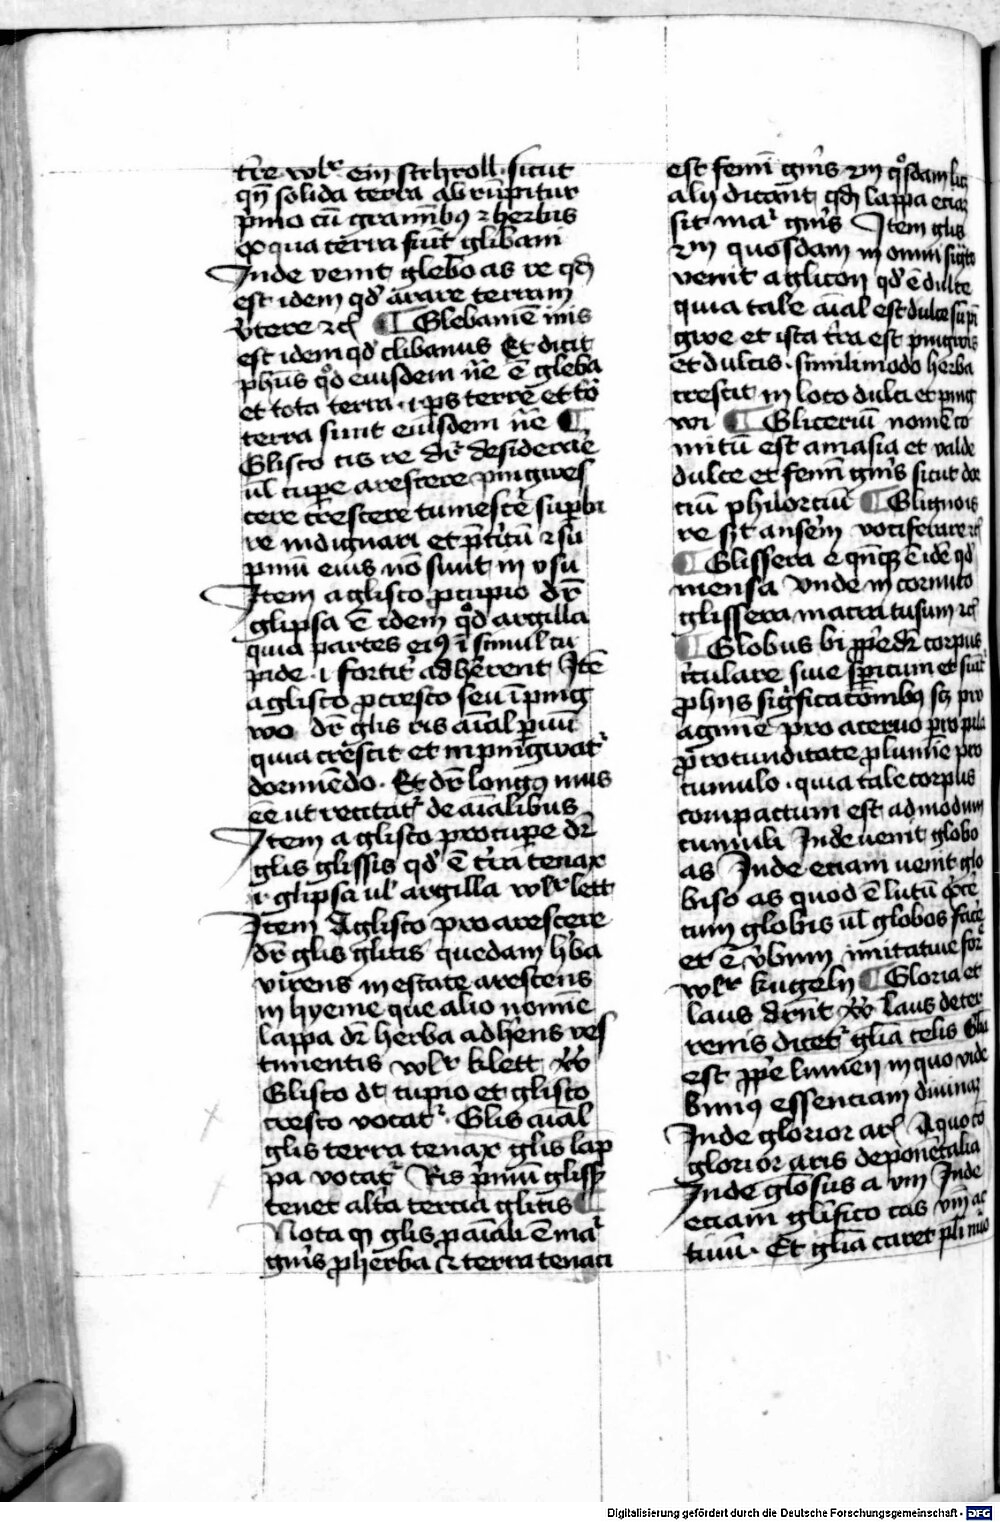 tr̄e wlr ein schroll · sicut
qn̄ solida terra abrūpitur
p̄mo cū gramībꝫ ⁊ herbis
ex qua terra fiūt glibani
Inde venit glebo as re qd̄
est idem qd̄ arare terram
v̄tere ⁊cͣ ¶ Glebaniē inis
est idem qd̄ clibanus Et dicit
ph̄us qd̄ eiusdem nͥe ē gleba
et tota terra · i · ps terre et to
terra sunt eiusdem nͥe ¶
Glisco cis re dr̄ desiderare
ul cupe arescere pingwes
cere crescere tumescē supbi
re indignari et p̄titū ⁊ su
pinū eius nō sunt in vsu
Item a glisco p cupio dr̄
glipsa ē idem qd̄ argilla
quia partes eiꝰ ī simul cu
pide · i fortit᷑ adherent Itē
a glisco p cresco seu īping
wo dr̄ glis ris aīal p̄uū
quia crescit et inpingwat᷑
dormiēdo · Et dr̄ longꝰ mus
ēē ut recitat᷑ de aīalibus
Item a glisco pro cupe dr̄
glis glissis qd̄ ē tr̄a tenax
i glipsa ul argilla wlr lett
Item A glisco pro arescere
dr̄ glis glitis quedam hͥba
virens in estate arescens
in hyeme que alio nomīe
lappa dr̄ herba adhērens ves
timentis wlr klett
Glisco dt̄ cupio et glisco
cresco vocat᷑ · Glis aīal
glis terra tenax glis lap
pa vocat᷑ Ris p̄mū gliss
tenet altā tercia glitis ¶
Nota qꝫ glis p aīali ē ma᷑
gn̄is p herba ⁊ terra tenaci
est femī gn̄is ⁊m qͦsdam
alij dicānt qd̄ lappa eciā
sit ma᷑ gn̄is Item glis
⁊m quosdam in omni
venit a glicon qd̄ ē dulce
quia tale aīal est dulce
gwe et ista tr̄a est pingwis
et dulcis · similimodo herba
crescit in loco dulci et ping
wi ¶ Glicerīu nomē
mitū est amasia et valde
dulce et femī gn̄is sicut
ciū philorciū ¶
re st̄ anserm vociferare ⁊cͣ
¶ Glissera e ē idē qd̄
mensa Vnde in cornuto
glissera macra tusum ⁊cͣ
¶ Globus bi ꝓpe dr̄ corpus
circulare siue spicum et
phijs significacōmbꝫ scꝫ pro
agmīe pro aceruo pro pila
p rotunditate p lumīe pro
cumulo · quia tale corpus
compactum est ad modum
cumuli Inde uenit globo
as Inde eciam uenit glo
biso as quod ē lutū
cum globis ul globos facē
et ē vͥbum imitatiue
wlr kugeln ¶ Gloria et
laus drn̄t Laus deter
renis dicet᷑ glīa celis
est ꝓpe lumen in quo vide
bimꝰ essenciam diuinaꝫ
Inde glorior arͥ A quo
glorior aris deponētalia
Inde glōsus a vm Inde
eciam glifico cas vm̄ ac
tiuū · Et glīa caret pli
Digitalisierung gefördert durch die Deutsche Forschungsgemeinschaft - DFG